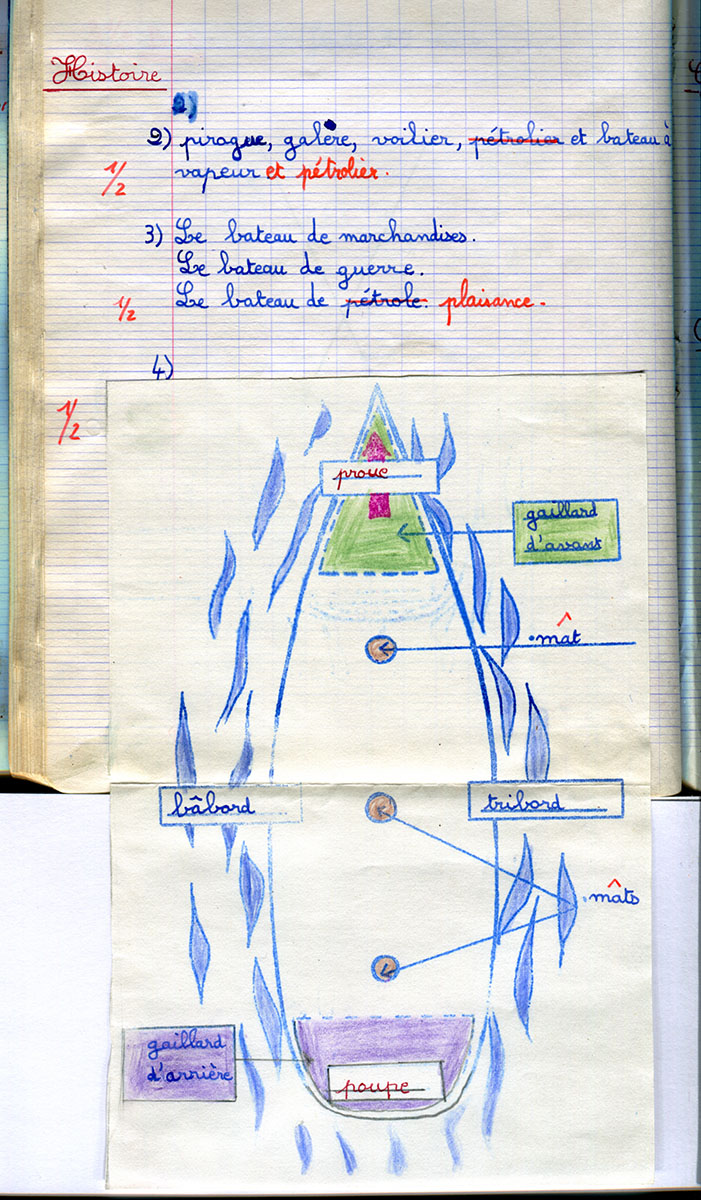 Histoire
2)
2) pirogue, galère, voilier, pétrolier et bateau à
1/2 vapeur et pétrolier.
3) Le bateau de marchandises.
Le bateau de guerre.
1/2 Le bateau de pétrole. plaisance.
4)
1/2
proue
gaillard
d'avant
mât
bâbord
tribord
mâts
gaillard
d'arrière
poupe